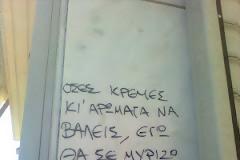 ΟΣΕΣ ΚΡΕΜΕΣ
ΚΙ' ΑΡΩΜΑΤΑ ΝΑ
ΒΑΛΕΙΣ, ΕΓΩ
ΘΑ ΣΕ ΜΥΡΙΖΩ